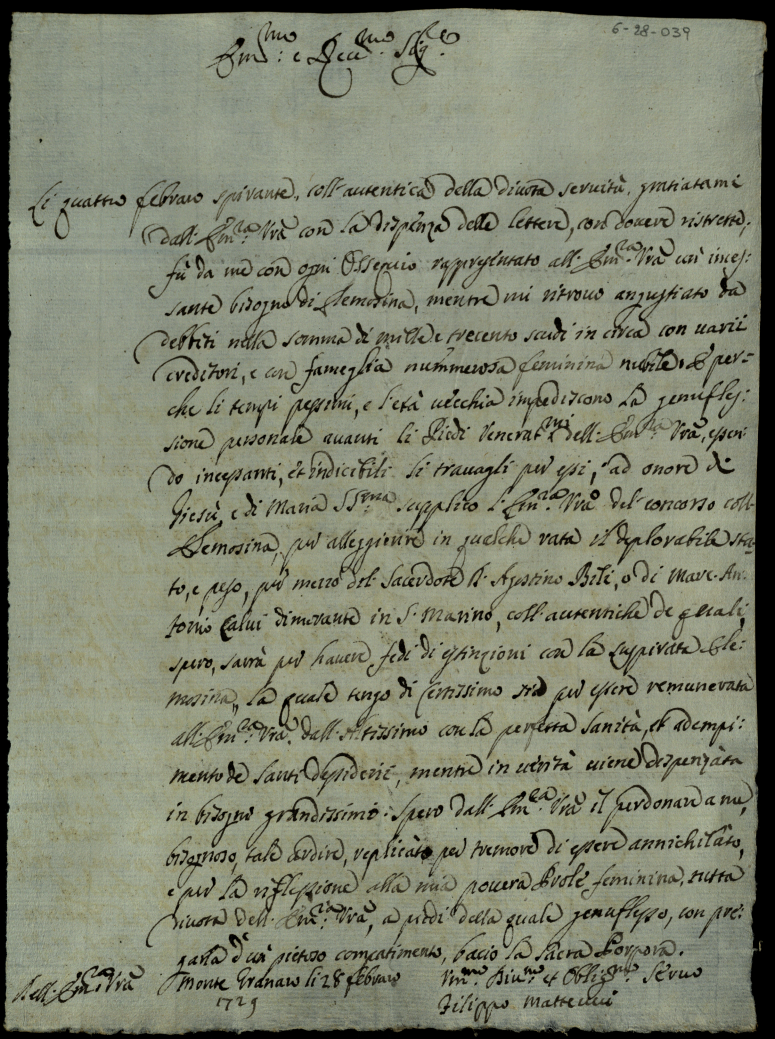 6-28-039
Em.mo: e Rev.mo Sig.e
Li quattro febraro spirante, coll'autentica della divota servitù, gratiatami
dall'Em.za Vrã con la dispenza delle lettere, con dovere ristretto,
fù da me con ogni Ossequio rappresentato all'Em.za Vrã un inces:
sante bisogno di Elemosina, mentre mi ritrovo angustiato da
debbiti nella somma di mille e trecento scudi in circa con varii
creditori, e con fameglia nummerosa feminina nubile. E per=
che li tempi pessimi, e l'età vecchia impediscono la genufles:
sione personale avanti li Piedi Venerat.mi dell'Em.za Vrã, essen:
do incessanti, et indicibili li travagli per essi, ad onore di
Giesù, e di Maria SS.ma supplico l'Em.za Vrã del concorso coll'
Elemosina, per alleggierire in qualche rata il deplorabile sta=
to, e peso, per mezzo del Sacerdote D. Agostino Bili, o di Marc'An:
tonio Calvi dimorante in S. Marino, coll'autentiche de quali,
spero, sarrà per havere fedi di estinzioni con la suspirata Ele:
mosina, la quale tengo di certissimo sia per essere remunerata
all'Em.za Vrã dall'Altissimo con la perfetta sanità, et adempi:
mento de Santi desiderii, mentre in verità viene dispenzata
in bisogno grandissimo. Spero dall'Em.za Vrã il perdonare a me,
bisognoso, tale ardire, replicato per tremore di essere annichilato,
e per la riflessione alla mia povera Prole feminina, tutta
divota dell'Em.za Vrã, a piedi della quale genuflesso, con pre:
garla d'un pietoso compatimento, bacio la Sacra Porpora.
Dell'Em.za Vrã Monte Granaro li 28 febraro Um.mo Div.mo et Oblig.mo Servo
1729 Filippo Matteucci